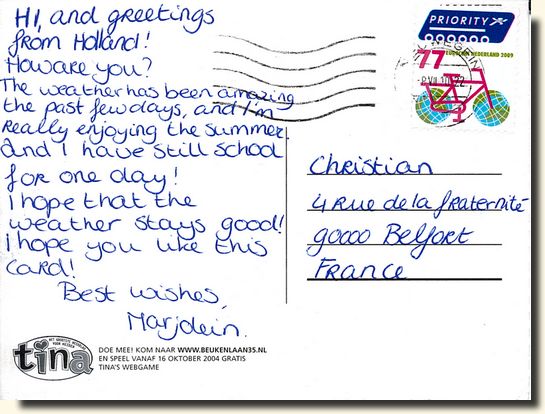 Hi, and greetings
from Holland!
How are you?
The weather has been amazing
the past few days, and I'm
really enjoying the summer.
And I have still school
for one day!
I hope that the
weather stays good!
I hope you like this
card!
Best wishes,
Marjolein.
PRIORITY
NEDERLAND 2009
77
Christian
4 Rue de la fraternité
90000 Belfort
France
tina
DOE MEE! KOM NAAR WWW.BEUKENLAAN35.NL
EN SPEEL VANAF 16 OKTOBER 2004 GRATIS
TINA'S WEBGAME